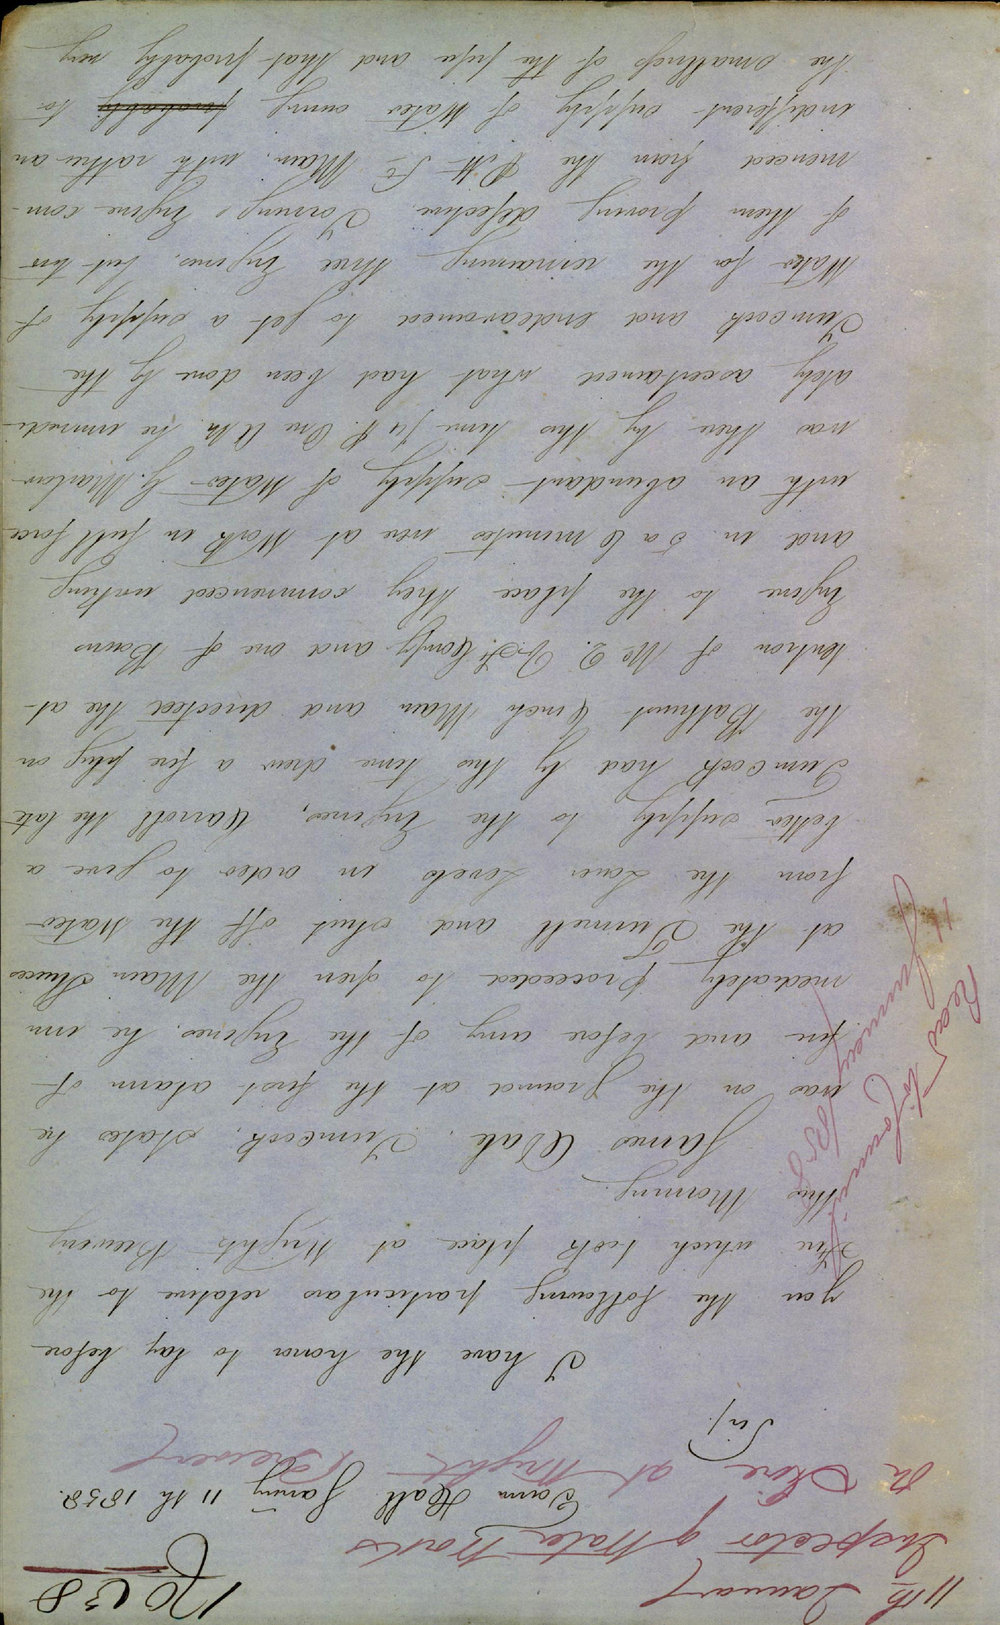 11th January
Inspector of Water Works
Re Fire at Wright
Brewery
Town Hall Janry 11th 1858.
Sir,
I have the honor to lay before
you the following particulars relative to the
Fire which took place at Wrights Brewery
this Morning.
James Wale, Turncock, states he
was on the ground at the first alarm of
fire and before any of the Engines. he im
mediately proceeded to open the Main Sluices
at the Tunnell and shut off the Water
from the Lower Levels in order to give a
better supply to the Engines, Carroll the late
Turncock had by this time drew a fire plug on
the Bathurst 4 inch Main and directed the at-
tention of No 2. Compy and one of Bowns
Engine to the place they commenced working
and in 5 a 6 minutes were at Work in full force
with an abundant supply of Water Mr. Marlow
was there by this time ¼ P. One A M. he immedi-
ately ascertained what had been done by the
Turncock and endeavoured to get a supply of
Water for the remaining three Engines. but two
of them proving defective. Torning's Engine com-
menced from the Pitt St Main, with rather an
indifferent supply of Water owing probably to
the smallness of the pipe and that probably very
Read to Committee
11 January 1858